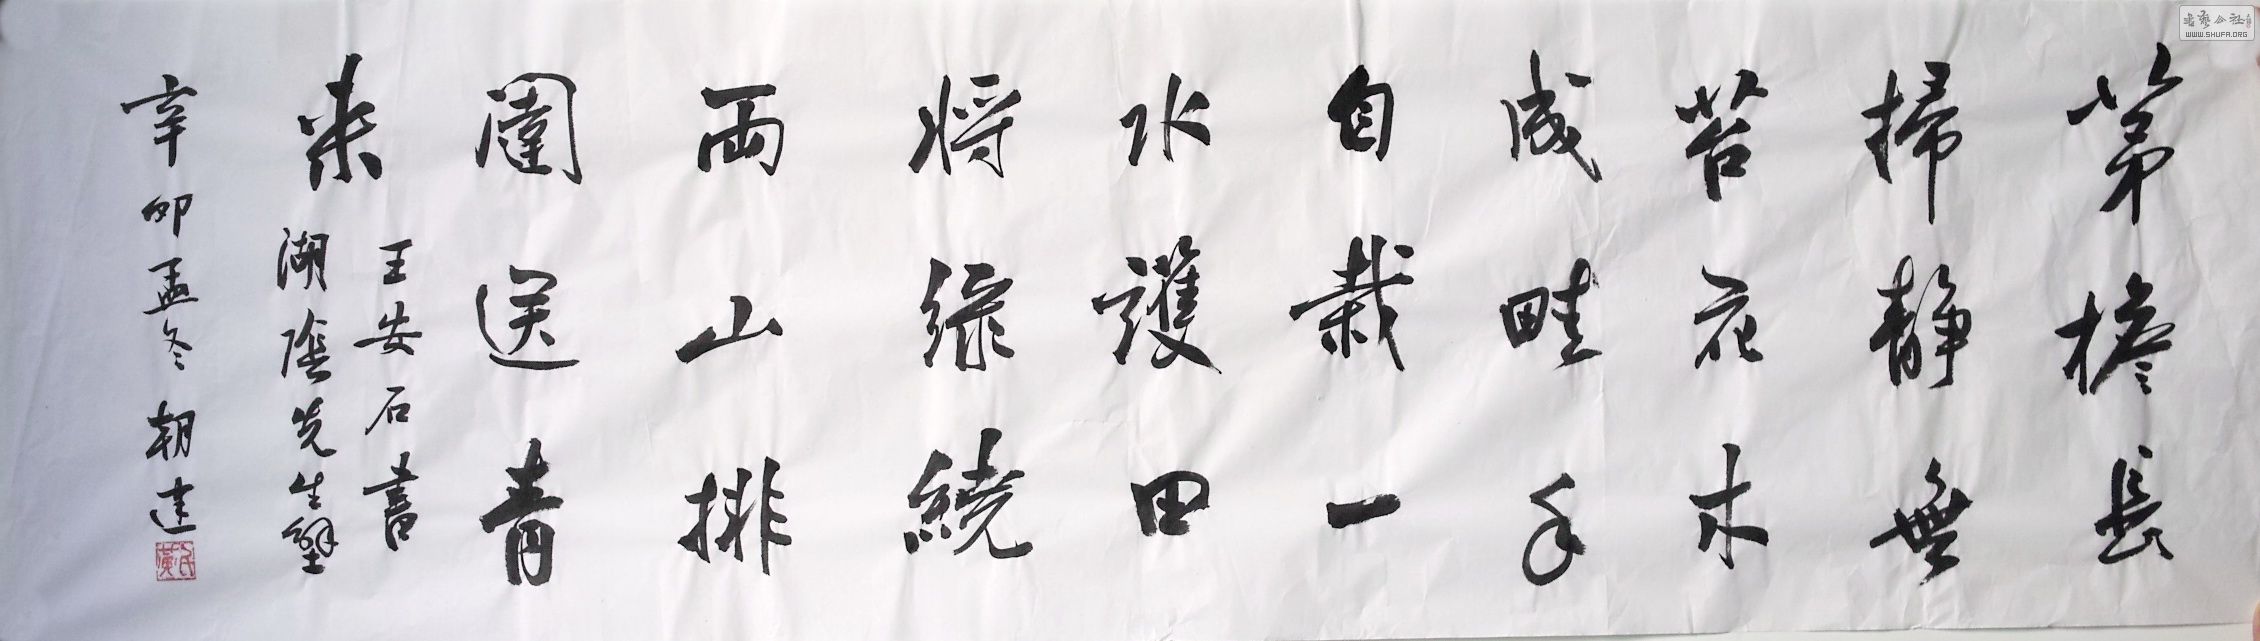 茅檐長
掃静無
苔花木
成畦手
自栽一
水護田
將緑繞
兩山排
闥送青
来
王安石書
湖陰先生壁
辛卯孟冬 朝建
WWW.SHUFA.ORG